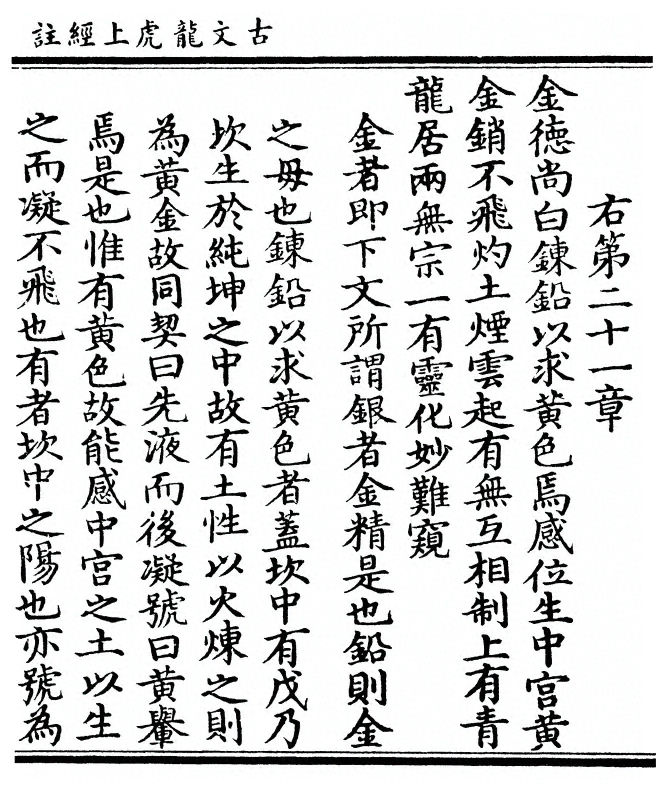 古文龍虎上經註
右第二十一章
金徳尚白鍊鉛以求黃色焉感位生中宮黃
金銷不飛灼土煙雲起有無互相制上有青
龍居兩無宗一有靈化妙難窺
金者即下文所謂銀者金精是也鉛則金
之母也鍊鉛以求黃色者蓋坎中有戊乃
坎生於純坤之中故有土性以火煉之則
為黃金故同契曰先液而後凝號曰黃轝
焉是也惟有黃色故能感中宮之土以生
之而凝不飛也有者坎中之陽也亦號為